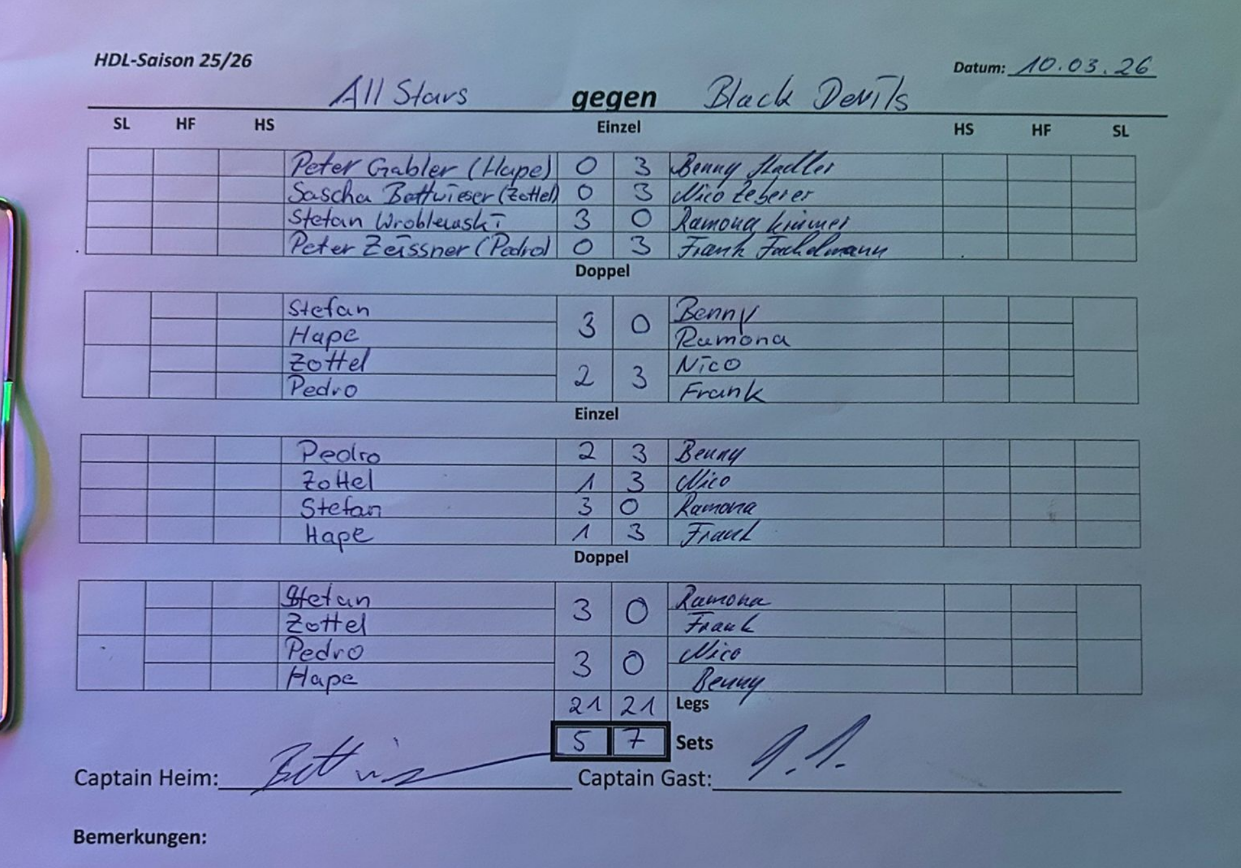 HDL-Saison 25/26 Datum: 10.03.26
All Stars gegen Black Devils
SL HF HS Einzel HS HF SL
Peter Gabler (Hape) 0 3 Benny Stadler
Sascha Bettwieser (Zottel) 0 3 Nico Zeberer
Stefan Wroblewski 3 0 Ramona Kimmer
Peter Zeissner (Pedro) 0 3 Frank Fackelmann
Doppel
Stefan 3 0 Benny
Hape Ramona
Zottel 2 3 Nico
Pedro Frank
Einzel
Pedro 2 3 Benny
Zottel 1 3 Nico
Stefan 3 0 Ramona
Hape 1 3 Frank
Doppel
Stefan 3 0 Ramona
Zottel Frank
Pedro 3 0 Nico
Hape Benny
21 21 Legs
5 7 Sets
Captain Heim: Captain Gast:
Bemerkungen: